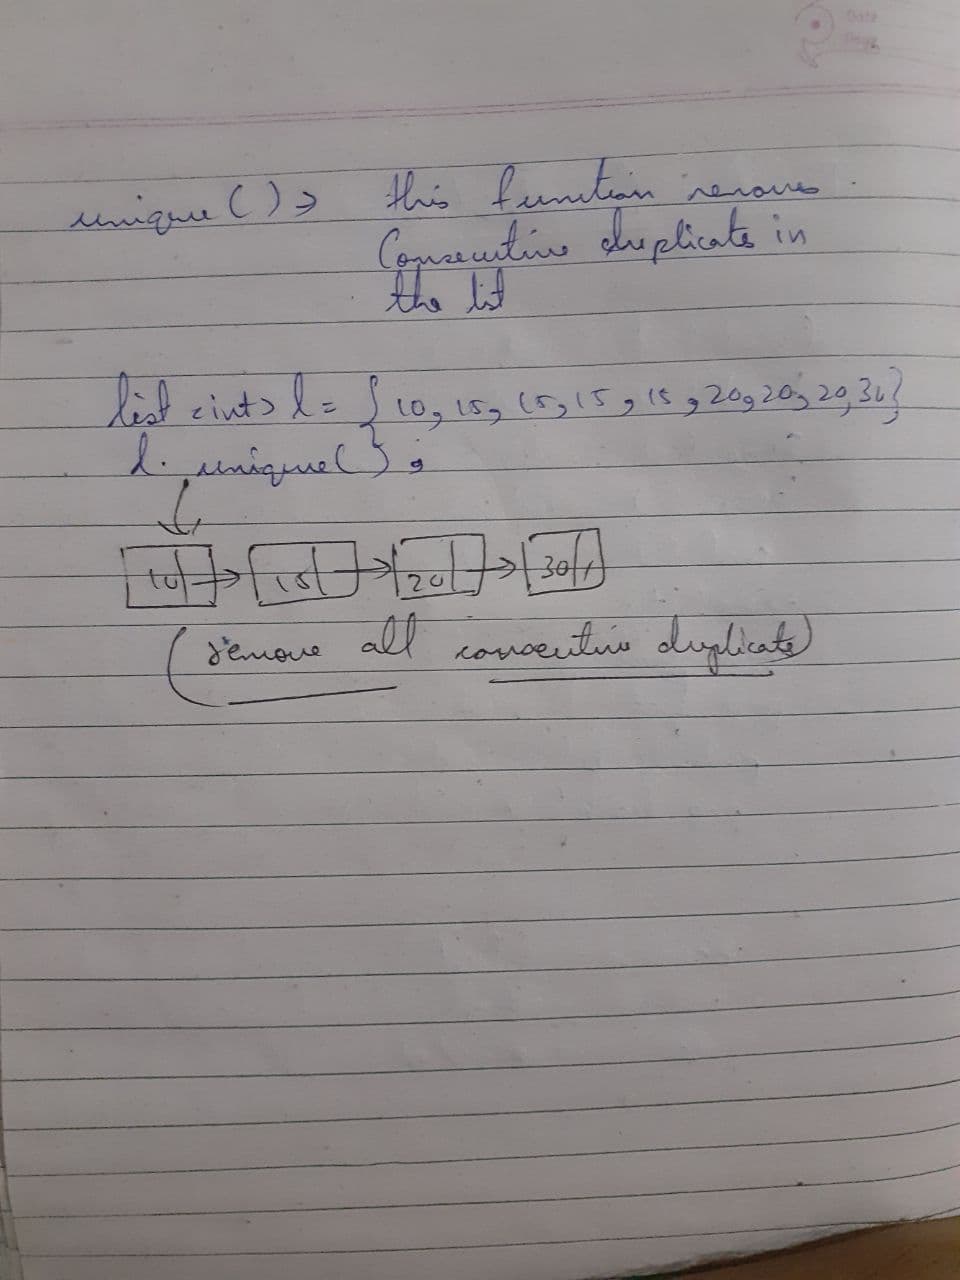 Date
unique () → this function removes
Consecutive duplicate in
the list
list <int> l = { 10, 15, 15, 15, 15, 20, 20, 20, 30}
l. unique();
10 → 15 → 20 → 30
(remove all consecutive duplicate)